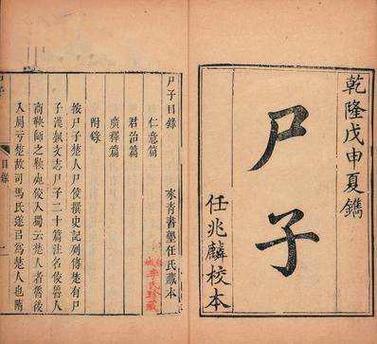 乾隆戊申夏鐫
尸子
任兆麟校本
尸子目錄
仁意篇
君治篇
廣釋篇
附錄
家青書塾任氏藏本
李氏珍藏
按尸子楚人尸佼撰史記列傳楚有尸
子漢藝文志尸子二十篇注名佼魯人
商鞅師之鞅死佼入蜀云楚人者魯後
入屬亏楚故司馬氏遂㠯爲楚人也隋
尸子
目錄
一